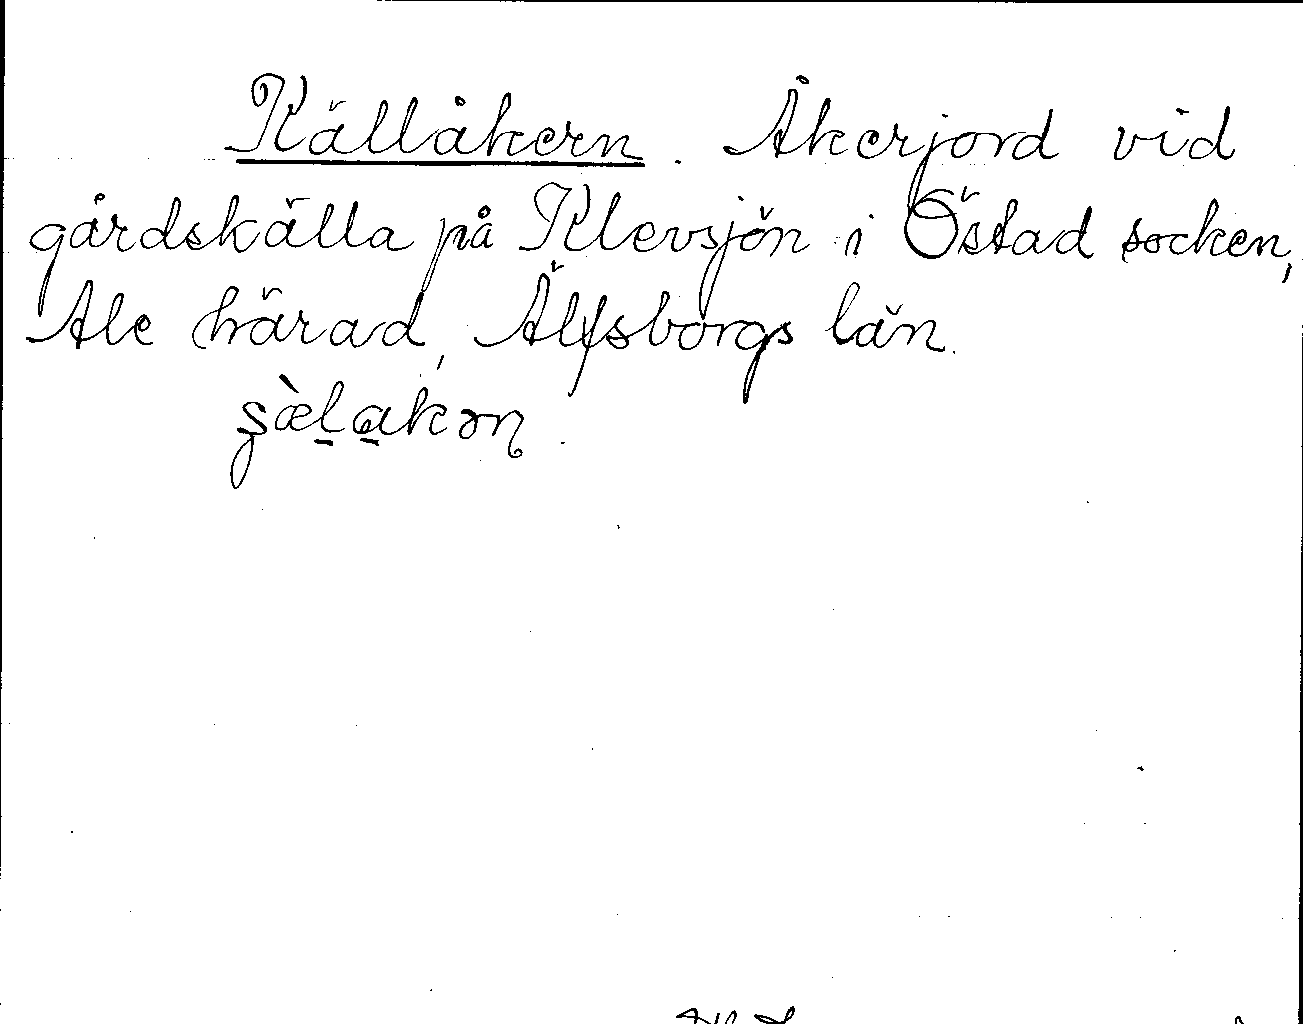 Källåkern. Åkerjord vid
gårdskälla på Klevsjön i Östad socken,
Ale härad, Älfsborgs län.